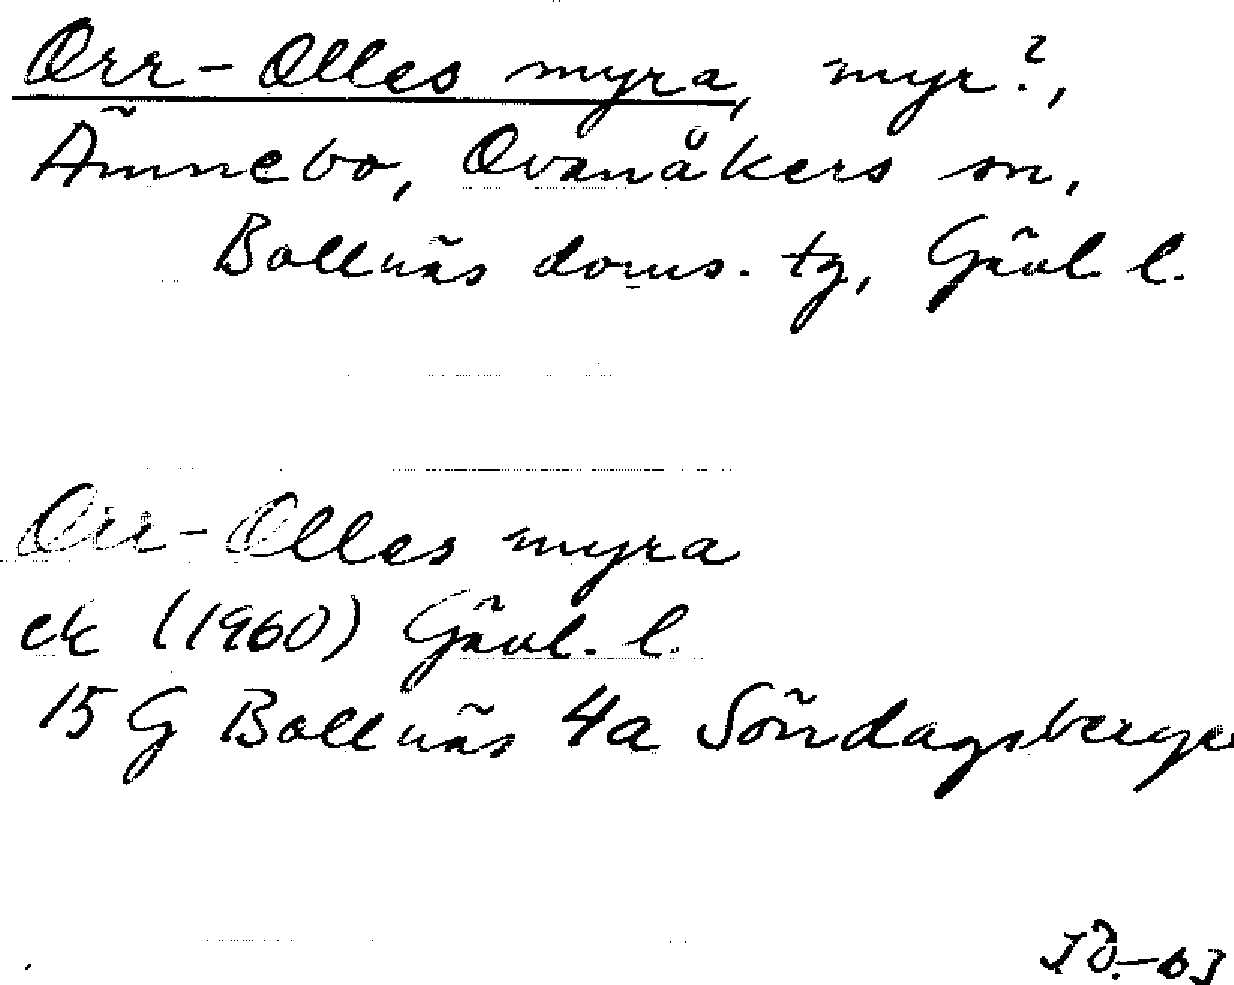 Orr-Olles myra, myr?,
Ämnebo, Ovanåkers sn,
Bollnäs doms. tg, Gävl. l.
Orr-Olles myra
ek (1960) Gävl. l.
15 G Bollnäs 4a Söndagsberge